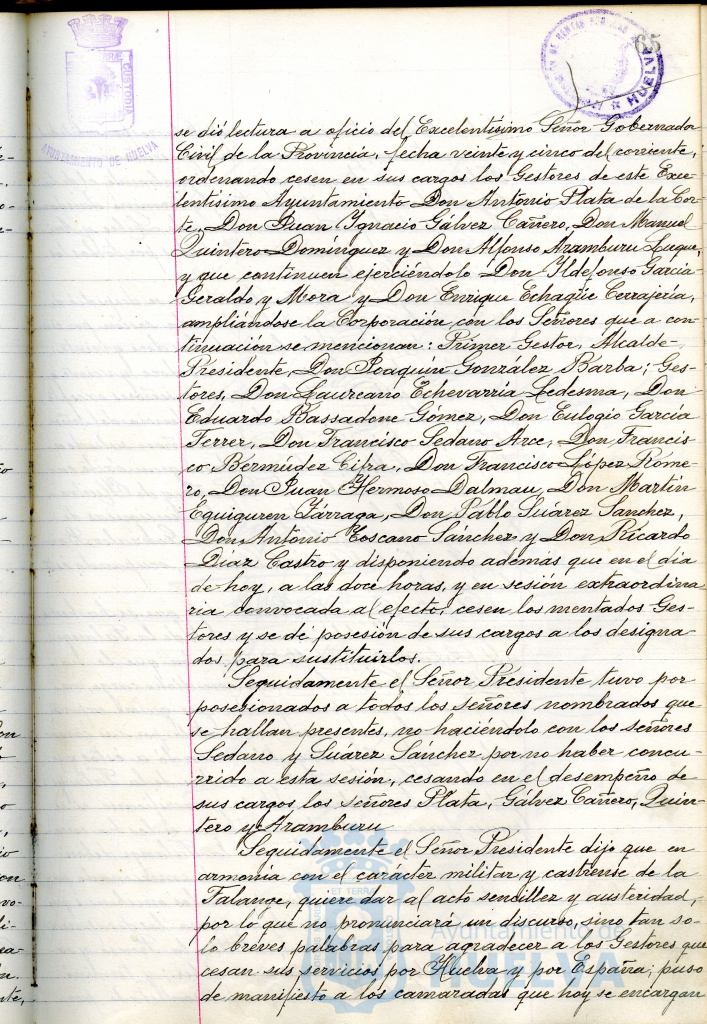 65
CUSTODIA
AYUNTAMIENTO DE HUELVA
HUELVA
se dió lectura a oficio del Excelentísimo Señor Gobernador
Civil de la Provincia, fecha veinte y cinco del corriente,
ordenando cesen en sus cargos los Gestores de este Exce-
lentísimo Ayuntamiento Don Antonio Plata de la Cor-
te, Don Juan Ignacio Gálvez Cañero, Don Manuel
Quintero Domínguez y Don Alfonso Aramburu Luque,
y que continuen ejerciéndolo Don Ildefonso García
Geraldo, y Mora y Don Enrique Echagüe Cerrajería,
ampliándose la Corporación con los Señores que a con-
tinuación se mencionan: Primer Gestor, Alcalde-
Presidente, Don Joaquín González Barba; Ges-
tores, Don Laureano Echevarría Ledesma, Don
Eduardo Bassadone Gómez, Don Eulogio García
Ferrer, Don Francisco Sedano Arce, Don Francis-
co Bermúdez Cifra, Don Francisco López Rome-
ro, Don Juan Hermoso Dalmau, Don Martín
Eguiguren Yárraga, Don Pablo Suárez Sánchez,
Don Antonio Toscano Sánchez y Don Ricardo
Díaz Castro y disponiendo además que en el día
de hoy, a las doce horas, y en sesión extraordina
ria convocada al efecto, cesen los mentados Ges-
tores y se dé posesión de sus cargos a los designa-
dos para sustituirlos.
Seguidamente el Señor Presidente tuvo por
posesionados a todos los señores nombrados que
se hallan presentes, no haciéndolo con los señores
Sedano y Suárez Sánchez por no haber concu-
rrido a esta sesión, cesando en el desempeño de
sus cargos los señores Plata, Gálvez Cañero, Quin-
tero y Aramburu
Seguidamente el Señor Presidente dijo que en
armonía con el carácter militar y castrense de la
Falange, quiere dar al acto sencillez y austeridad,
por lo que no pronunciará un discurso, sino tan so-
lo breves palabras para agradecer a los Gestores que
cesan sus servicios por Huelva y por España; puso
de manifiesto a los camaradas que hoy se encargan
Ayuntamiento de
HUELVA